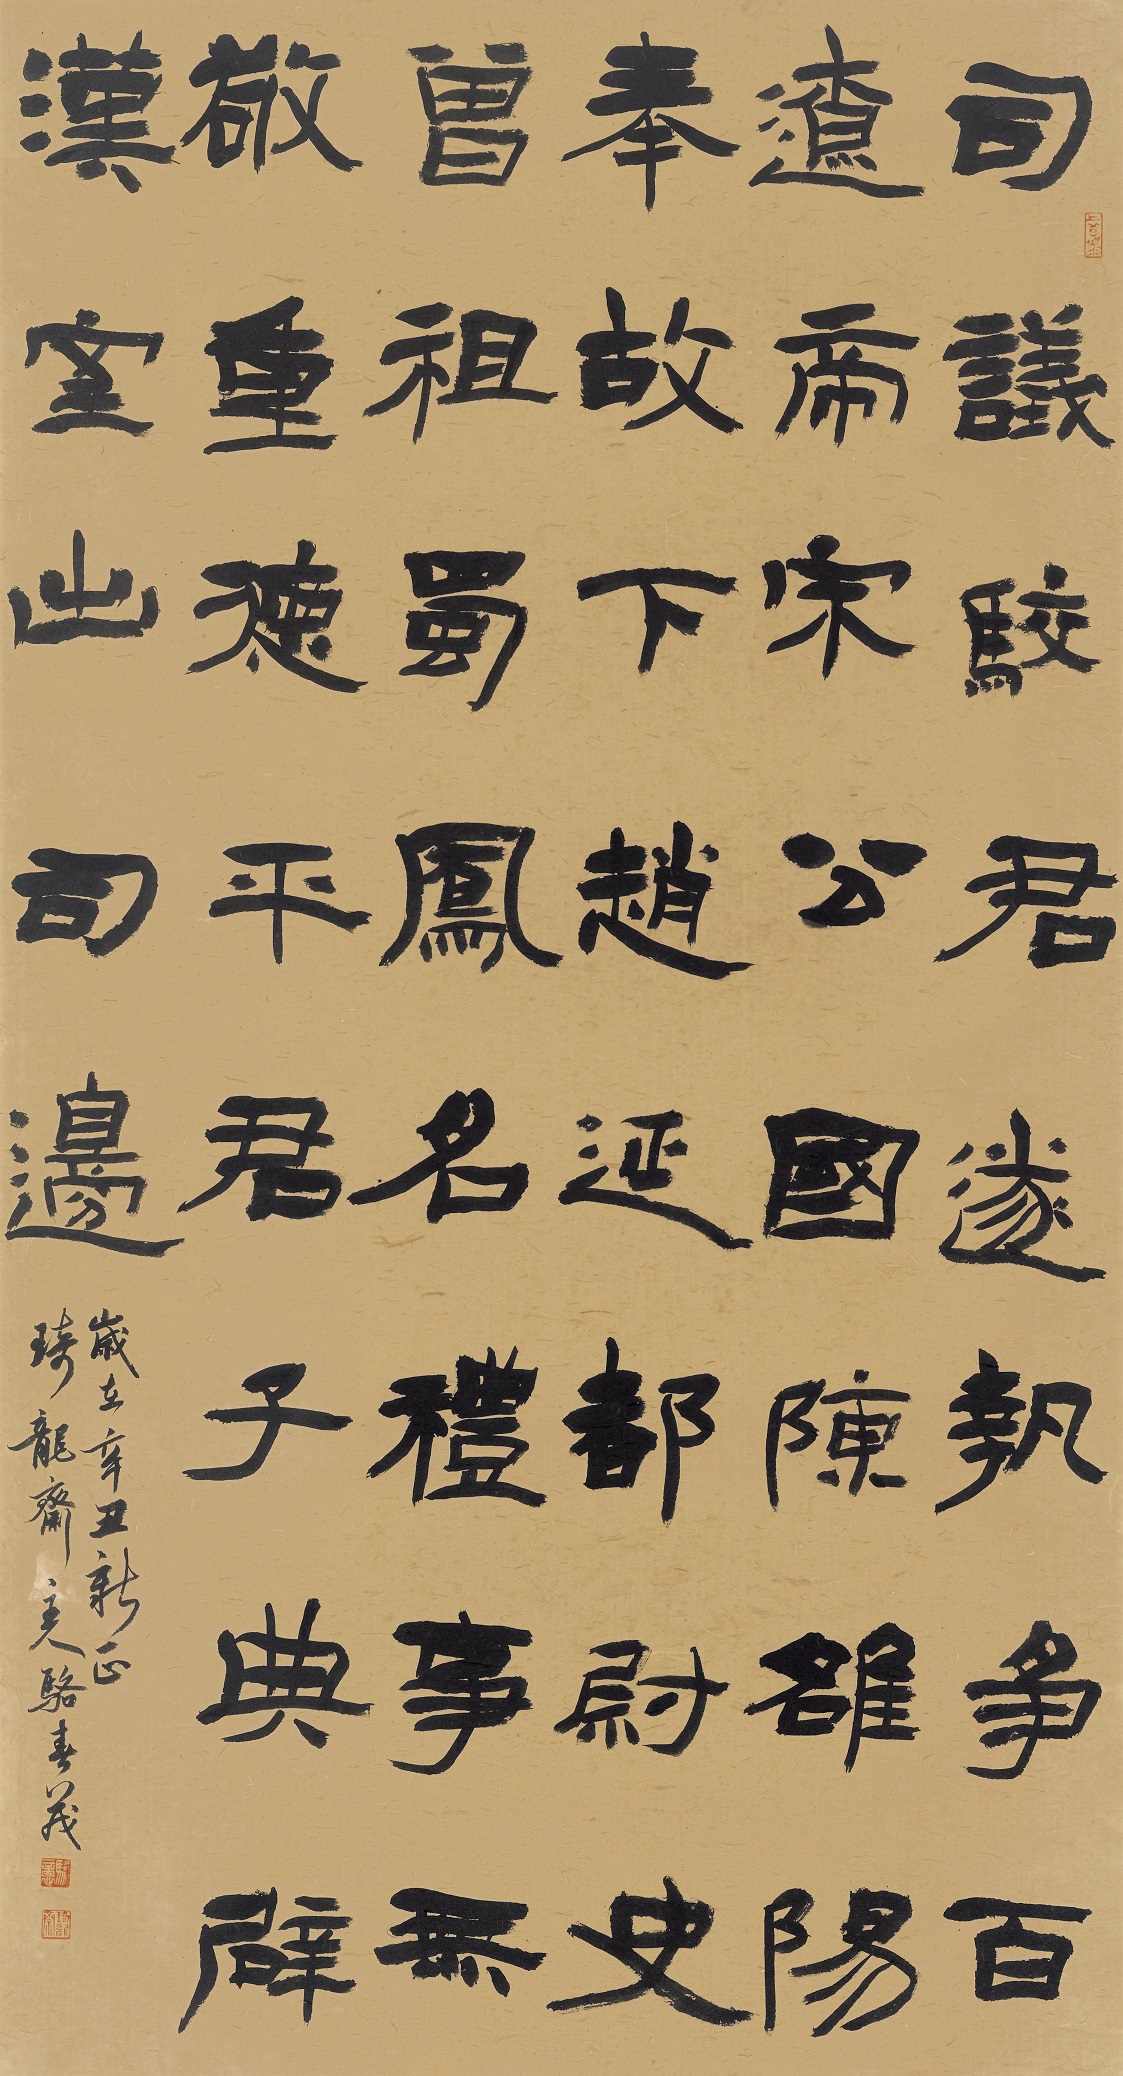 司議駮君遂執爭百
遼帝宋公國陳雒陽
奉故下趙延都尉史
曾祖蜀鳳名禮事無
敬重德平君子典辟
漢室出司邊
歲在辛丑新正
琦龍齋主人駱春義